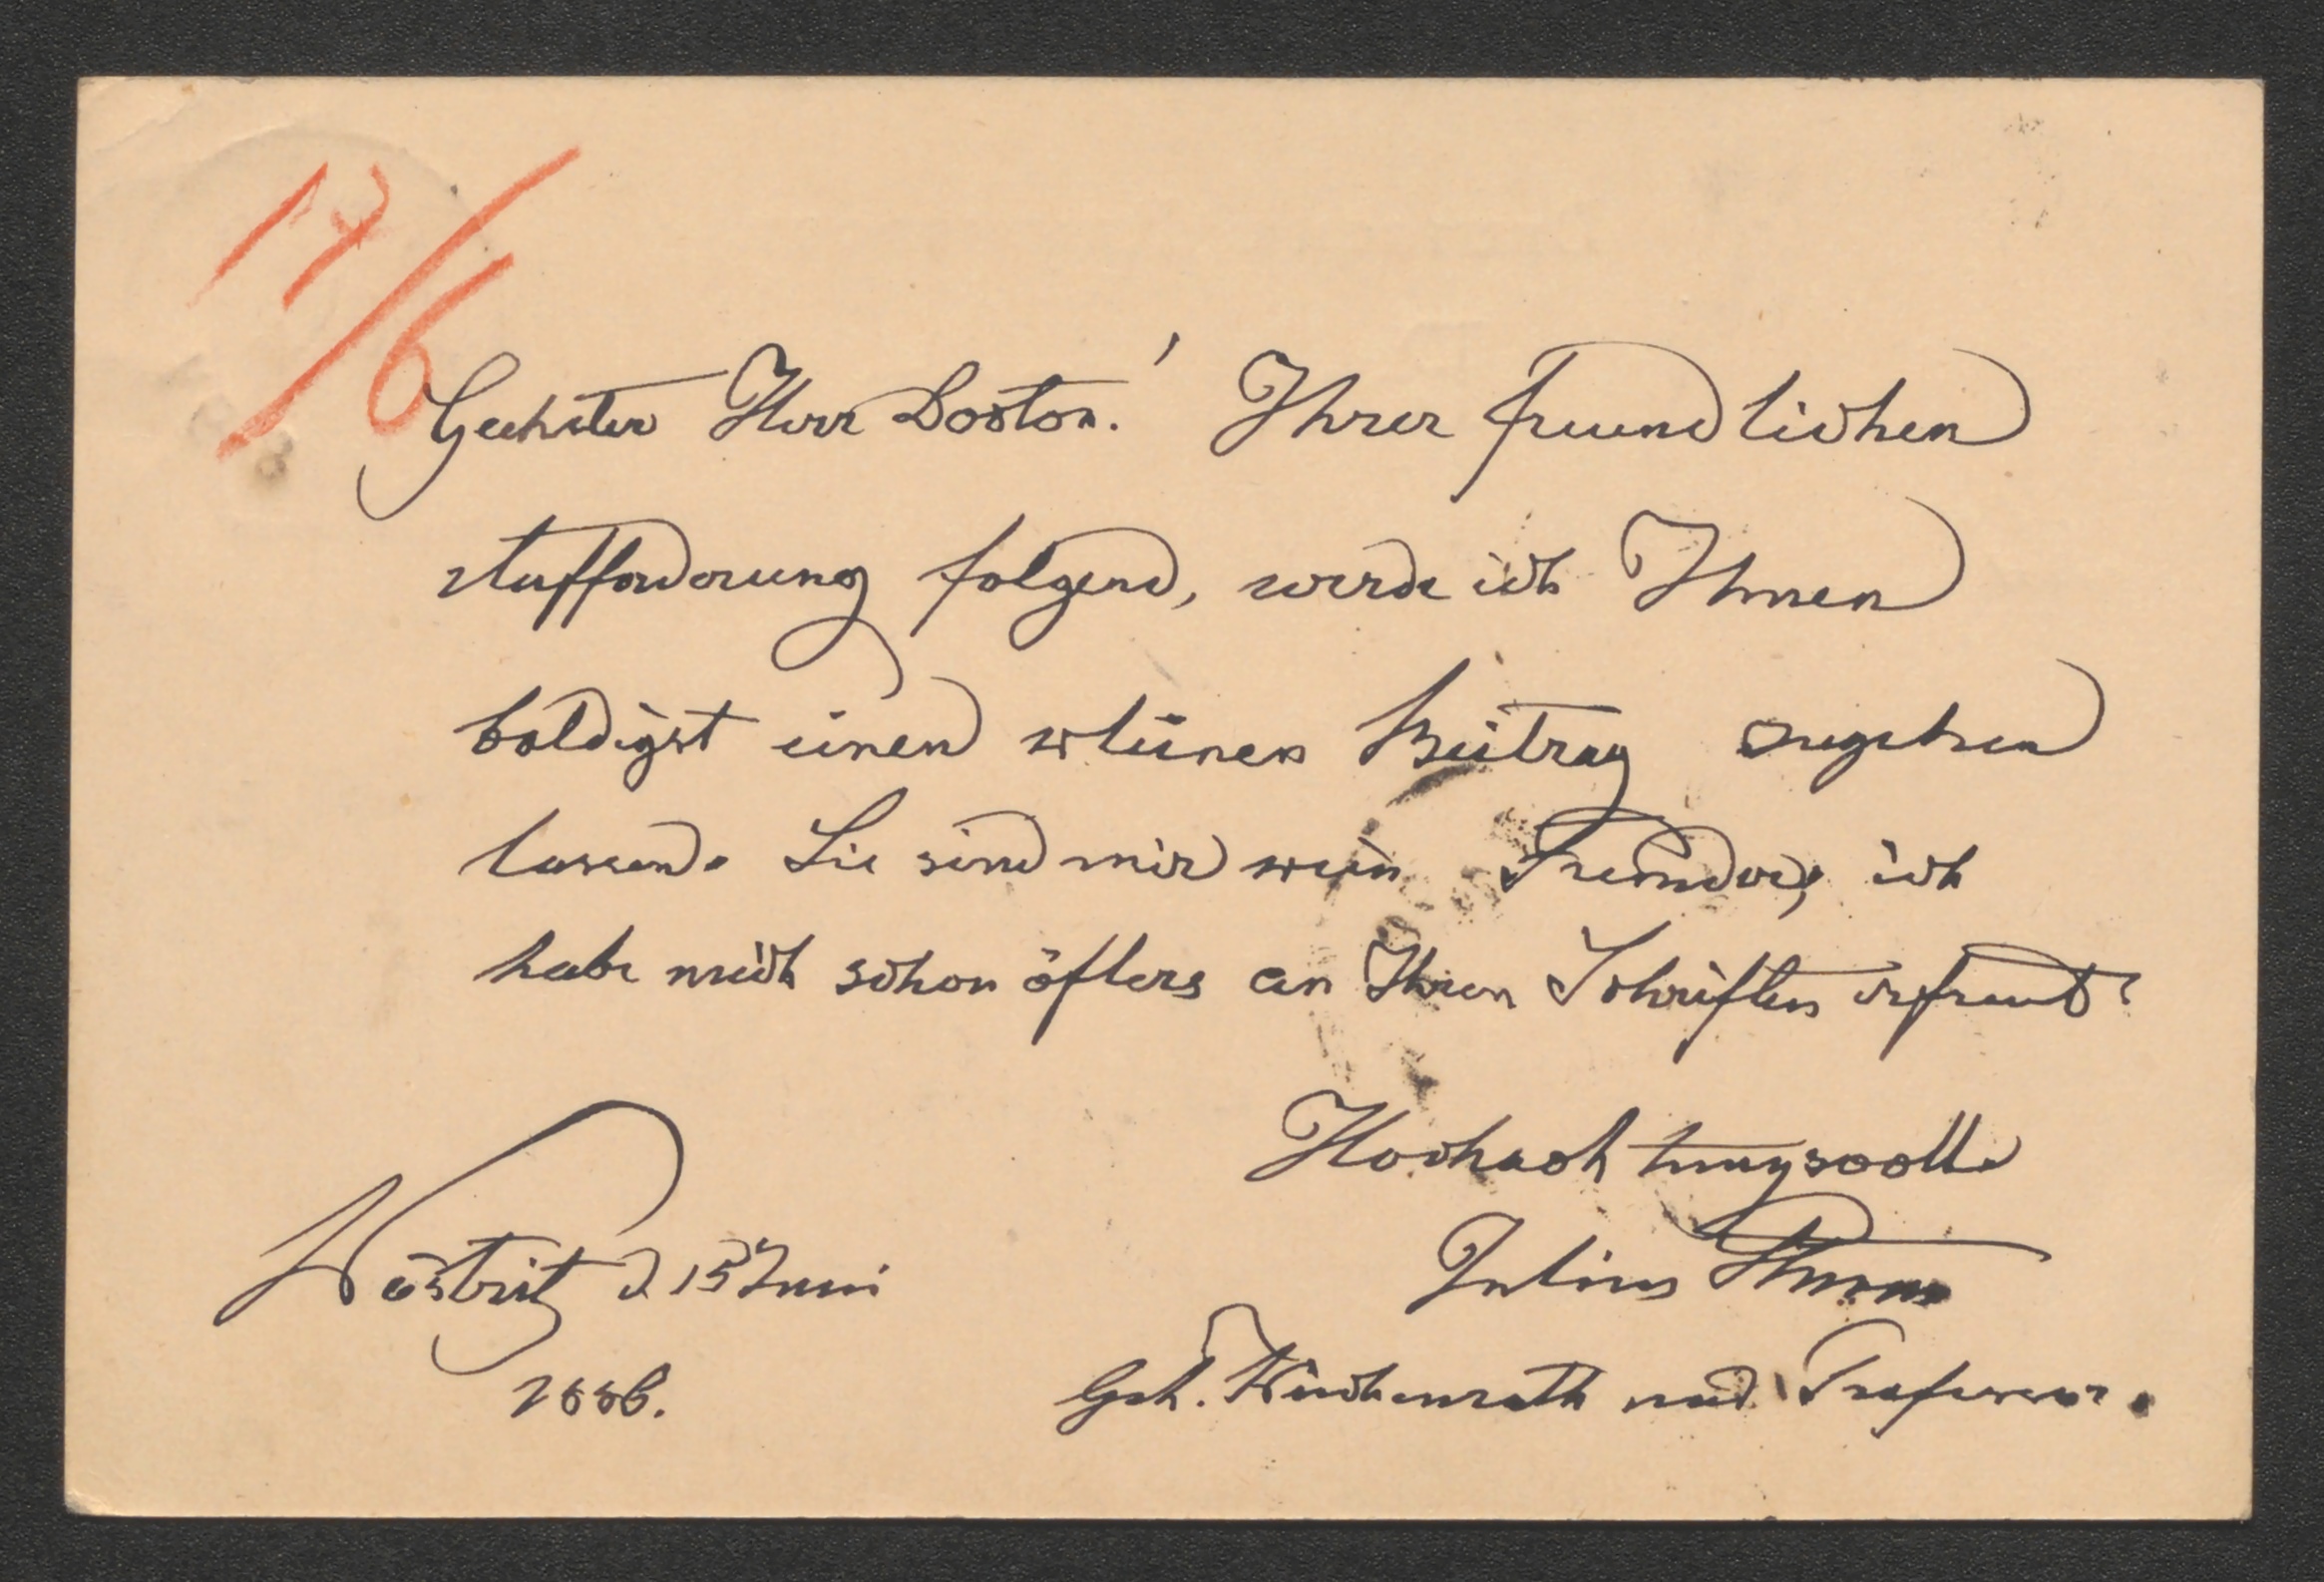 17/6
Geehrter Herr Doctor! Ihrer freundlichen
Aufforderung folgend, werde ich Ihnen
baldigst einen kleinen Beitrag zugehen
lassen. Sie sind mir kein Fremder, ich
habe mich schon öfters an Ihren Schriften erfreut.
Hochachtungsvoll
Julius Sturm
Köstritz d 15 Juni
1886.
Geh. Kirchenrath und Professor.